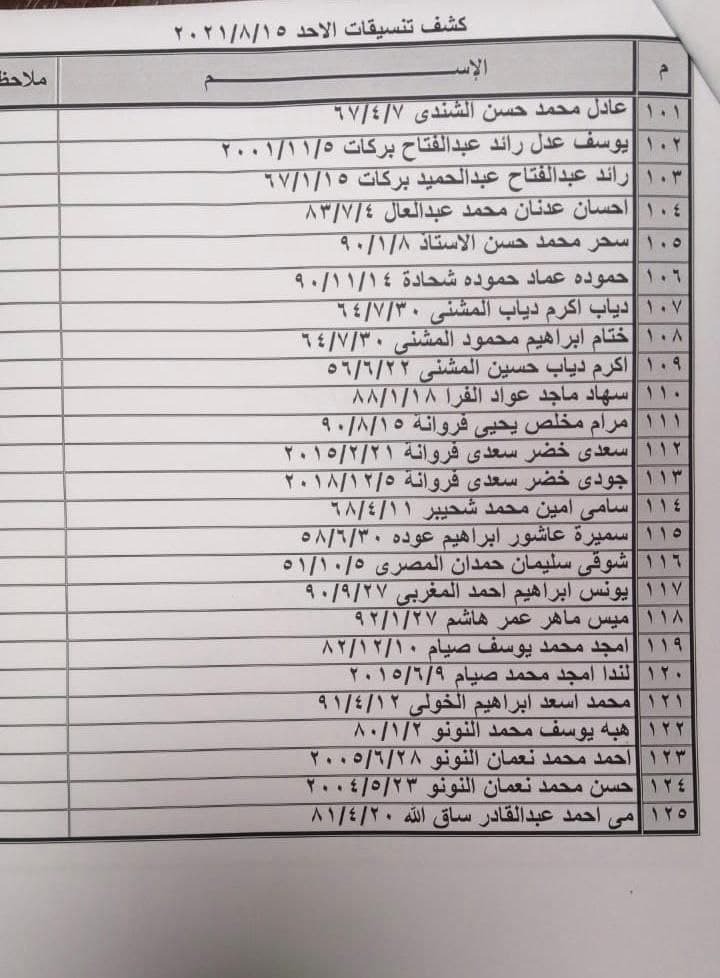 كشف تنسيقات الاحد ٢٠٢١/٨/١٥
م الإســـم ملاحظ
١٠١ عادل محمد حسن الشندى ٦٧/٤/٧
١٠٢ يوسف عدل رائد عبدالفتاح بركات ٢٠٠١/١١/٥
١٠٣ رائد عبدالفتاح عبدالحميد بركات ٦٧/١/١٥
١٠٤ احسان عدنان محمد عبدالعال ٨٣/٧/٤
١٠٥ سحر محمد حسن الاستاذ ٩٠/١/٨
١٠٦ حموده عماد حموده شحادة ٩٠/١١/١٤
١٠٧ دياب اكرم دياب المشنى ٦٤/٧/٣٠
١٠٨ ختام ابراهيم محمود المشنى ٦٤/٧/٣٠
١٠٩ اكرم دياب حسين المشنى ٥٦/٦/٢٢
١١٠ سهاد ماجد عواد الفرا ٨٨/١/١٨
١١١ مرام مخلص يحيى فروانة ٩٠/٨/١٥
١١٢ سعدى خضر سعدى فروانة ٢٠١٥/٢/٢١
١١٣ جودى خضر سعدى فروانة ٢٠١٨/١٢/٥
١١٤ سامى امين محمد شحيبر ٦٨/٤/١١
١١٥ سميرة عاشور ابراهيم عوده ٥٨/٦/٣٠
١١٦ شوقى سليمان حمدان المصرى ٥١/١٠/٥
١١٧ يونس ابراهيم احمد المغربي ٩٠/٩/٢٧
١١٨ ميس ماهر عمر هاشم ٩٢/١/٢٧
١١٩ امجد محمد يوسف صيام ٨٢/١٢/١٠
١٢٠ لندا امجد محمد صيام ٢٠١٥/٦/٩
١٢١ محمد اسعد ابراهيم الخولى ٩١/٤/١٢
١٢٢ هبه يوسف محمد النونو ٨٠/١/٢
١٢٣ احمد محمد نعمان النونو ٢٠٠٥/٦/٢٨
١٢٤ حسن محمد نعمان النونو ٢٠٠٤/٥/٢٣
١٢٥ مى احمد عبدالقادر ساق الله ٨١/٤/٢٠